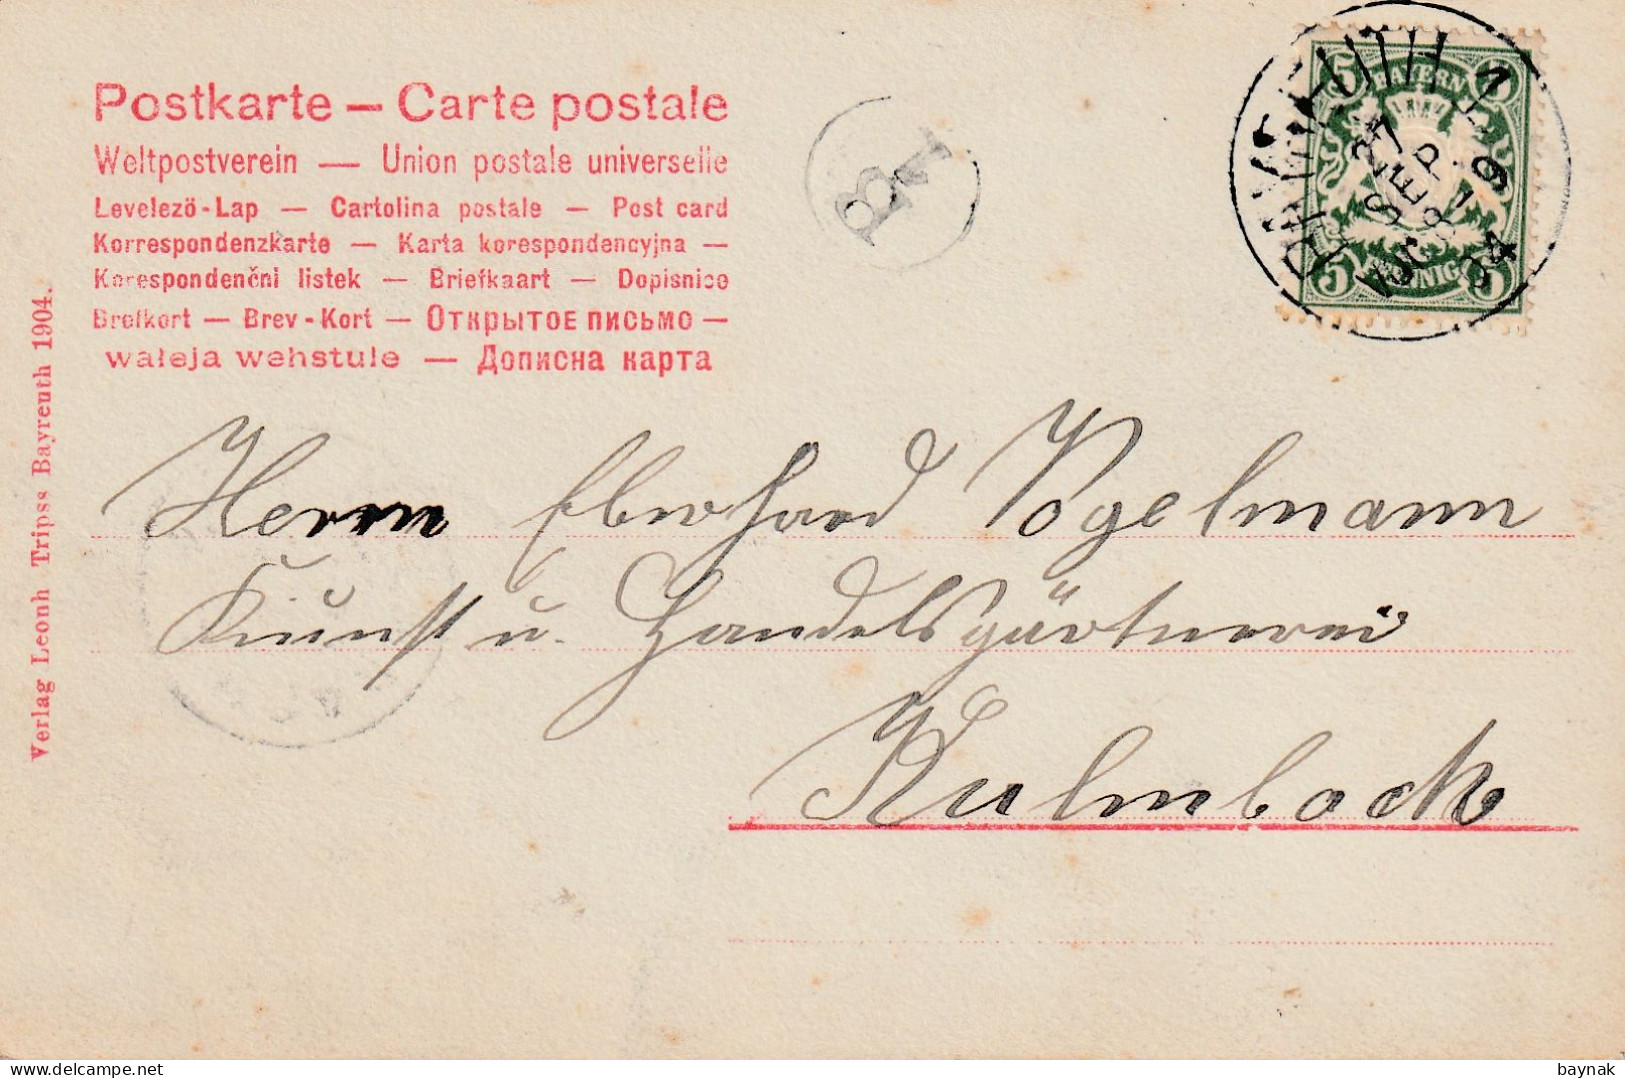 Postkarte — Carte postale
Weltpostverein — Union postale universelle
Levelezö-Lap — Cartolina postale — Post card
Korrespondenzkarte — Karta korespondencyjna —
Korespondenčni listek — Briefkaart — Dopisnice
Brefkort — Brev-Kort — Открытое письмо —
waleja wehstule — Дописна карта
Verlag Leonh Tripss Bayreuth 1904.
BAYREUTH 1
27 SEP
8-9
04
5 BAYERN 5
5 PFENNIG 5
Herrn Eberhard Vogelmann
Kunst u. Handelsgärtnerei
Kulmbach
baynak